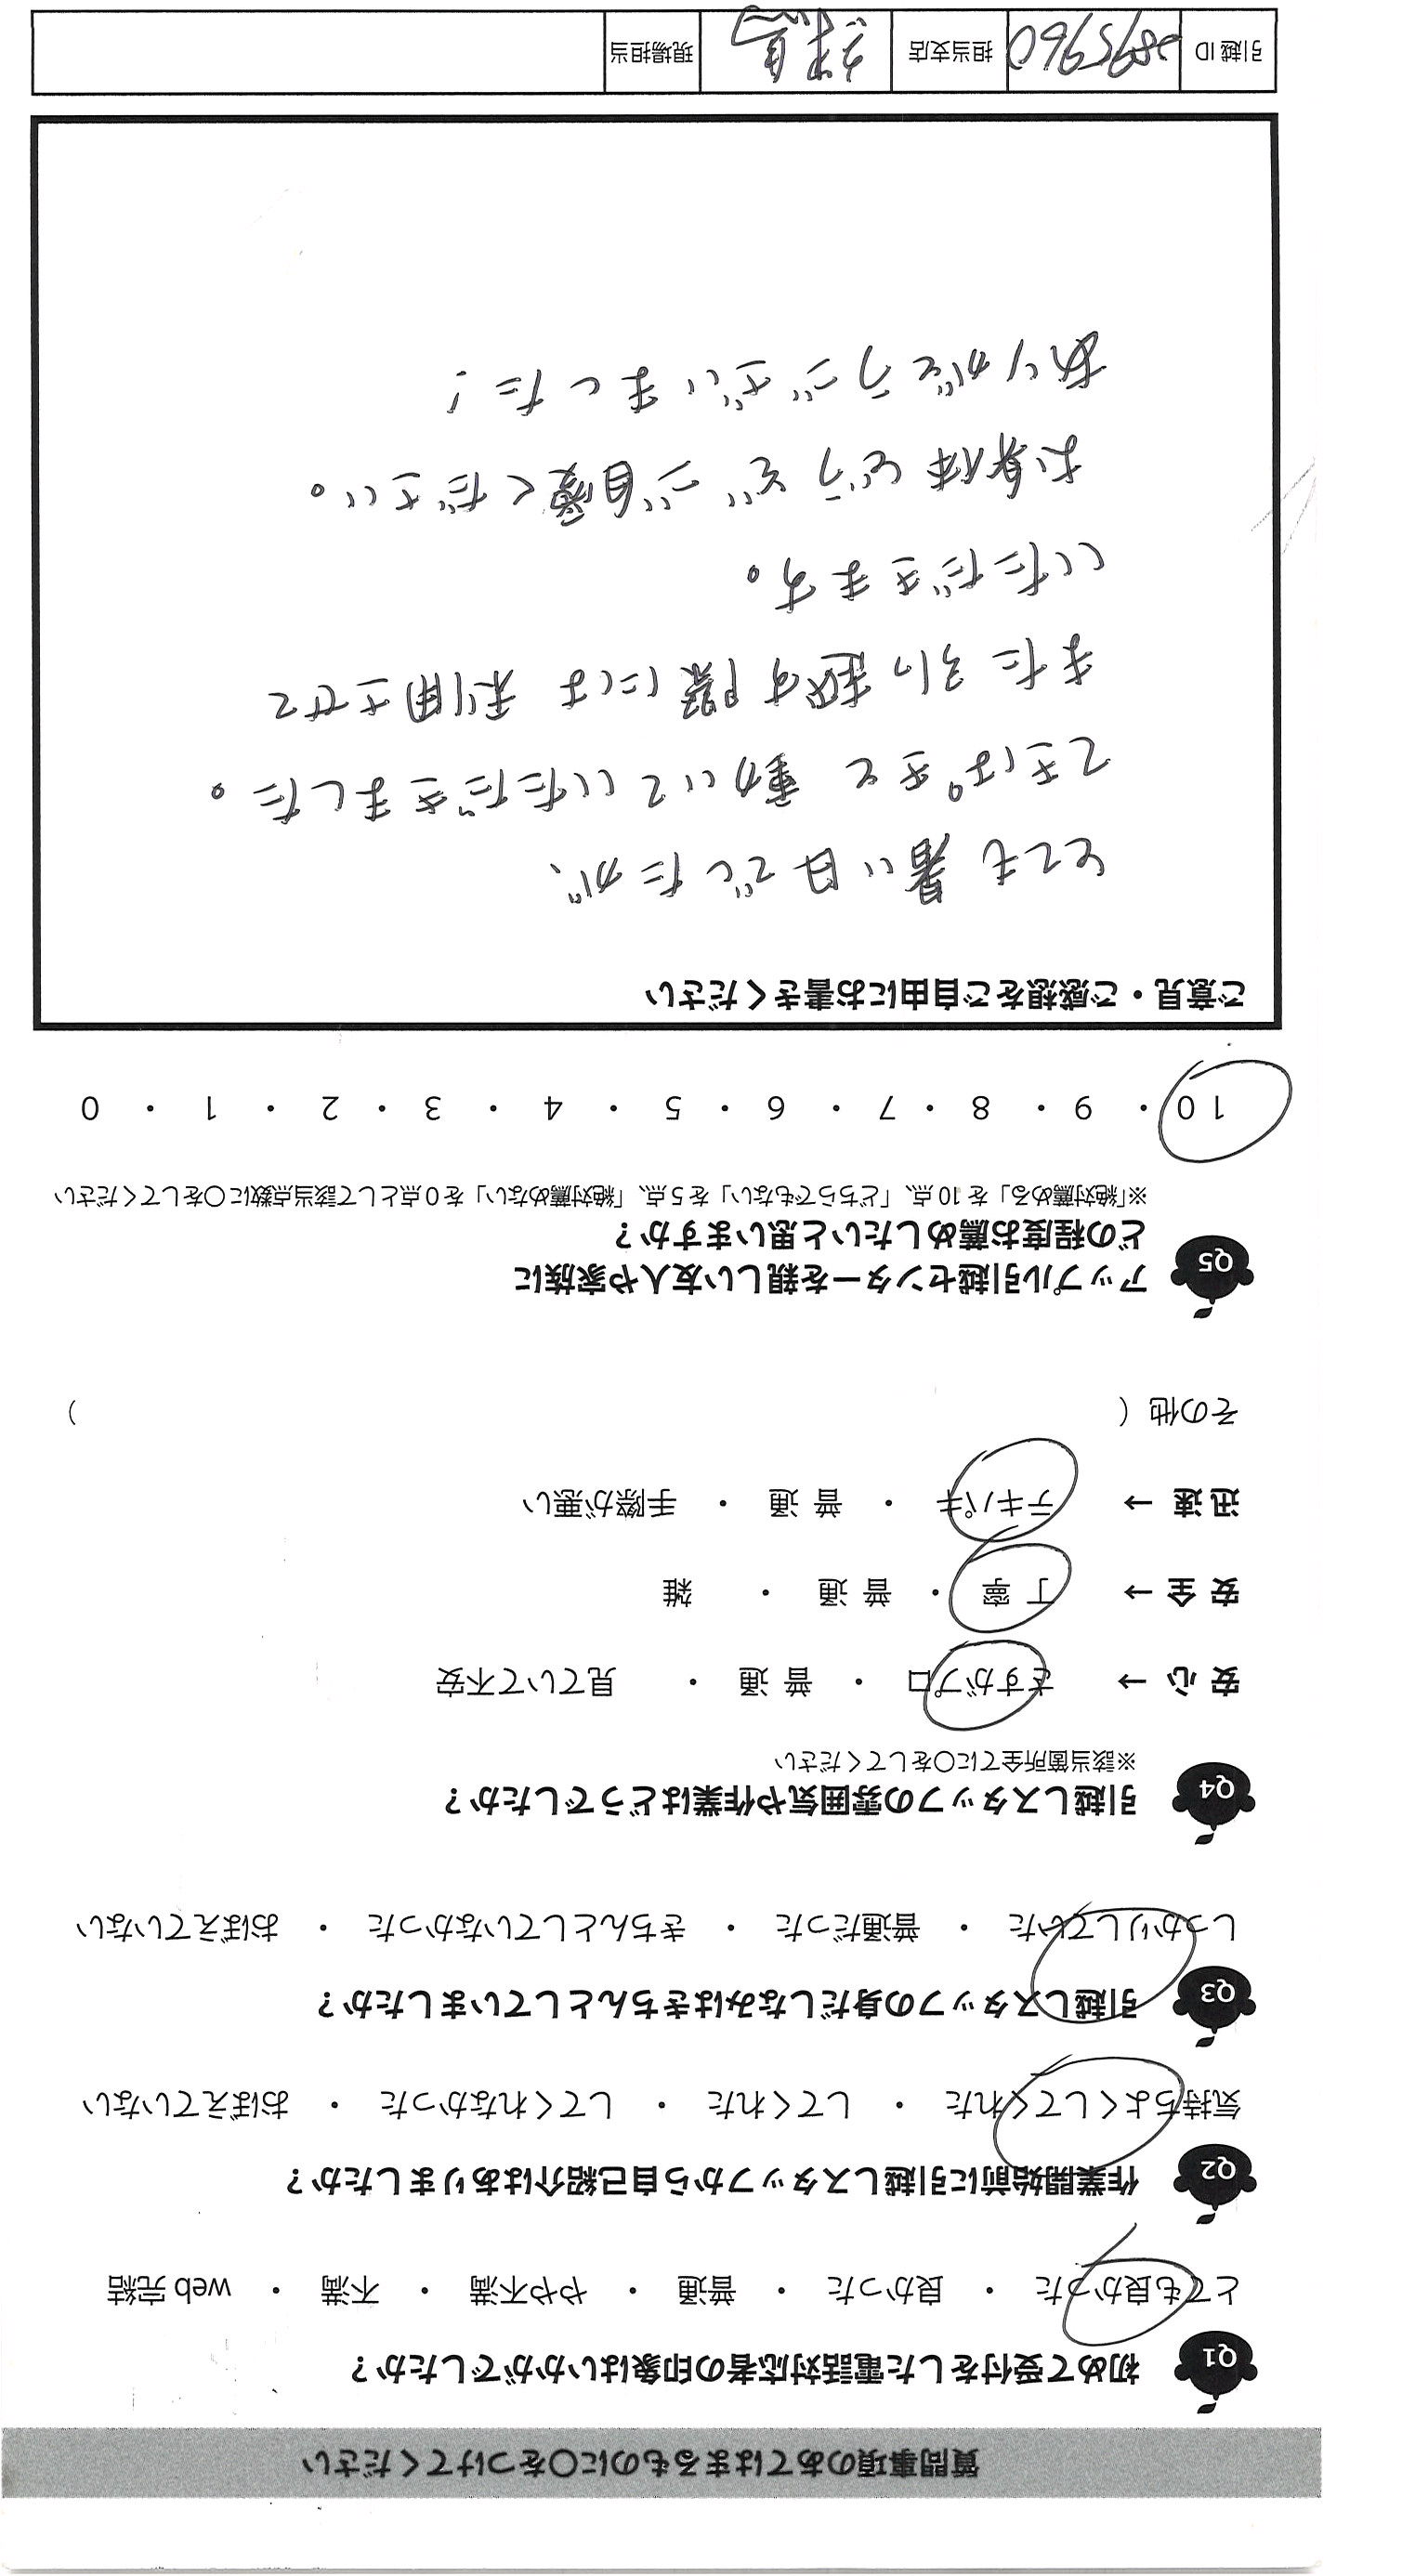 質問事項のあてはまるものに〇をつけてください
Q1 初めて受付をした電話対応者の印象はいかがでしたか？
とても良かった ・ 良かった ・ 普通 ・ やや不満 ・ 不満 ・ web 完結
Q2 作業開始前に引越しスタッフから自己紹介はありましたか？
気持ちよくしてくれた ・ してくれた ・ してくれなかった ・ おぼえていない
Q3 引越しスタッフの身だしなみはきちんとしていましたか？
しっかりしていた ・ 普通だった ・ きちんとしていなかった ・ おぼえていない
Q4 引越しスタッフの雰囲気や作業はどうでしたか？
※該当箇所全てに〇をしてください
安 心 → さすがプロ ・ 普 通 ・ 見ていて不安
安 全 → 丁 寧 ・ 普 通 ・ 雑
迅 速 → テキパキ ・ 普 通 ・ 手際が悪い
その他 ( )
Q5 アップル引越センターを親しい友人や家族に
どの程度お薦めしたいと思いますか？
※「絶対薦める」を 10 点、「どちらでもない」を 5 点、「絶対薦めない」を 0 点として該当点数に〇をしてください
10 ・ 9 ・ 8 ・ 7 ・ 6 ・ 5 ・ 4 ・ 3 ・ 2 ・ 1 ・ 0
ご意見・ご感想をご自由にお書きください
とても暑い日でしたが、
てきぱきと動いていただきました。
また引っ越す際には利用させて
いただきます。
お身体どうぞご自愛ください。
ありがとうございました！
引越 ID 担当支店 現場担当